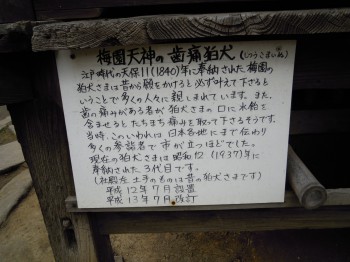 梅園天神の歯痛狛犬(しつうこまいぬ)
江戸時代の天保11(1840)年に奉納された梅園の
狛犬さまは昔から願をかけると必ず叶えて下さると
いうことで多くの人々に親しまれています。また、
歯の痛みがある者が狛犬さまの口に水飴を
含ませるとたちまち痛みを取って下さるそうです。
当時、このいわれは日本各地にまで伝わり
多くの参詣者で市が立つほどでした。
現在の狛犬さまは昭和12(1937)年に
奉納された3代目です。
(社殿左土手のものは昔の狛犬さまです)
平成12年7月設置
平成13年7月改訂